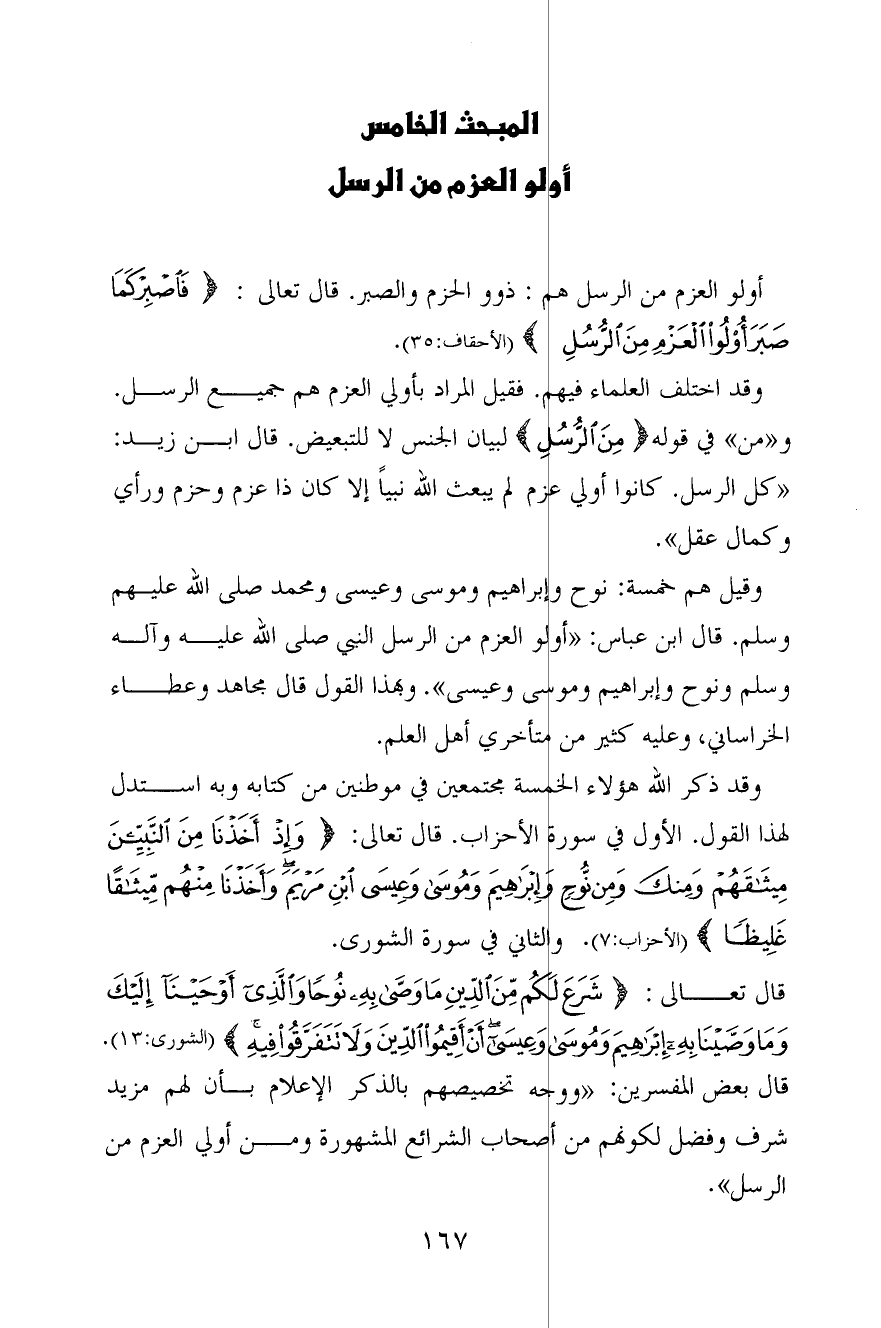 المبحث الخامس
أولو العزم من الرسل
أولو العزم من الرسل هم : ذوو الحزم والصبر. قال تعالى : ﴿ فَٱصۡبِرۡ كَمَا
صَبَرَ أُوْلُواْ ٱلۡعَزۡمِ مِنَ ٱلرُّسُلِ ﴾ (الأحقاف:٣٥).
وقد اختلف العلماء فيهم. فقيل المراد بأولي العزم هم جميع الرسل.
و«من» في قوله ﴿ مِنَ ٱلرُّسُلِ ﴾ لبيان الجنس لا للتبعيض. قال ابن زيد:
«كل الرسل. كانوا أولي عزم لم يبعث الله نبياً إلا كان ذا عزم وحزم ورأي
وكمال عقل».
وقيل هم خمسة: نوح وإبراهيم وموسى وعيسى ومحمد صلى الله عليهم
وسلم. قال ابن عباس: «أولو العزم من الرسل النبي صلى الله عليه وآله
وسلم ونوح وإبراهيم وموسى وعيسى». وبهذا القول قال مجاهد وعطاء
الخراساني، وعليه كثير من متأخري أهل العلم.
وقد ذكر الله هؤلاء الخمسة مجتمعين في موطنين من كتابه وبه استدل
لهذا القول. الأول في سورة الأحزاب. قال تعالى: ﴿ وَإِذۡ أَخَذۡنَا مِنَ ٱلنَّبِيِّـۧنَ
مِيثَٰقَهُمۡ وَمِنكَ وَمِن نُّوحٖ وَإِبۡرَٰهِيمَ وَمُوسَىٰ وَعِيسَى ٱبۡنِ مَرۡيَمَۖ وَأَخَذۡنَا مِنۡهُم مِّيثَٰقًا
غَلِيظٗا ﴾ (الأحزاب:٧). والثاني في سورة الشورى.
قال تعالى : ﴿ شَرَعَ لَكُم مِّنَ ٱلدِّينِ مَا وَصَّىٰ بِهِۦ نُوحٗا وَٱلَّذِيٓ أَوۡحَيۡنَآ إِلَيۡكَ
وَمَا وَصَّيۡنَا بِهِۦٓ إِبۡرَٰهِيمَ وَمُوسَىٰ وَعِيسَىٰٓۖ أَنۡ أَقِيمُواْ ٱلدِّينَ وَلَا تَتَفَرَّقُواْ فِيهِۚ ﴾ (الشورى:١٣).
قال بعض المفسرين: «ووجه تخصيصهم بالذكر الإعلام بأن لهم مزيد
شرف وفضل لكونهم من أصحاب الشرائع المشهورة ومن أولي العزم من
الرسل».
١٦٧